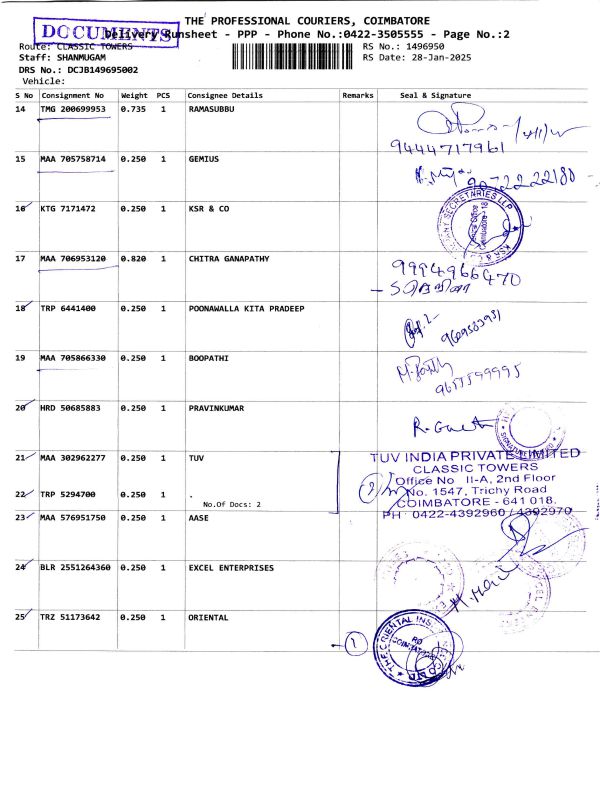 THE PROFESSIONAL COURIERS, COIMBATORE
DOCUMENTS
Delivery Runsheet - PPP - Phone No.:0422-3505555 - Page No.:2
Route: CLASSIC TOWERS RS No.: 1496950
Staff: SHANMUGAM RS Date: 28-Jan-2025
DRS No.: DCJB149695002
Vehicle:
S No Consignment No Weight PCS Consignee Details Remarks Seal & Signature
14 TMG 200699953 0.735 1 RAMASUBBU
9444717961
15 MAA 705758714 0.250 1 GEMIUS
90722 22180
16 KTG 7171472 0.250 1 KSR & CO
17 MAA 706953120 0.820 1 CHITRA GANAPATHY
9994966470
18 TRP 6441400 0.250 1 POONAWALLA KITA PRADEEP
9609583931
19 MAA 705866330 0.250 1 BOOPATHI
9655599995
20 HRD 50685883 0.250 1 PRAVINKUMAR
21 MAA 302962277 0.250 1 TUV
TUV INDIA PRIVATE LIMITED
CLASSIC TOWERS
Office No II-A, 2nd Floor
No. 1547, Trichy Road
COIMBATORE - 641 018.
PH : 0422-4392960 / 4392970
22 TRP 5294700 0.250 1 .
No.Of Docs: 2
23 MAA 576951750 0.250 1 AASE
24 BLR 2551264360 0.250 1 EXCEL ENTERPRISES
25 TRZ 51173642 0.250 1 ORIENTAL
1